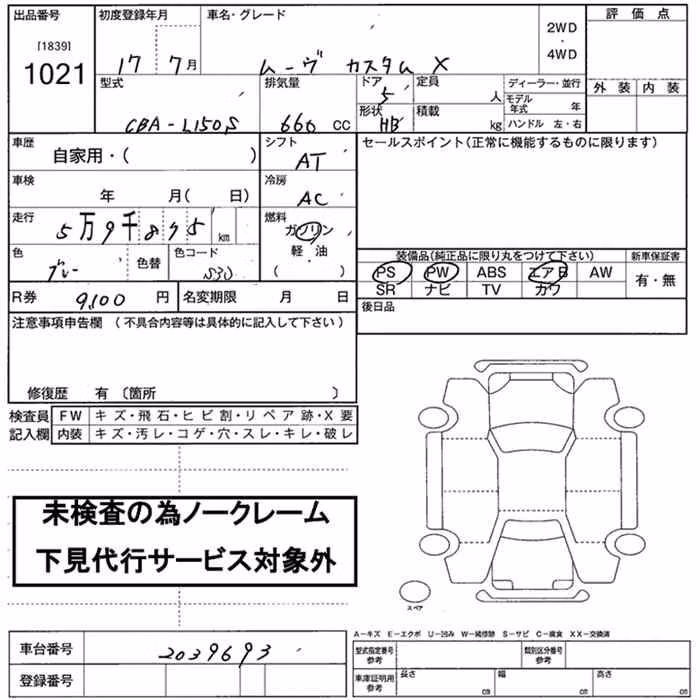 出品番号 初度登録年月 車名・グレード 評 価 点
[1839] 2WD
1021 17 7月 ムーヴ カスタム X 4WD
型式 排気量 ドア 定員 ディーラー・並行 外 装 内 装
5 人 モデル年式 年
CBA-L150S 660 CC 形状 HB 積載 kg ハンドル 左・右
車歴 シフト セールスポイント(正常に機能するものに限ります)
自家用・( ) AT
車検 冷房
年 月( 日) AC
走行 燃料
5万9千875 km ガソリン
軽・油
( )
色 グレー 色替 色コード S30
装備品(純正品に限り丸をつけて下さい) 新車保証書
PS PW ABS エアB AW 有・無
SR ナビ TV カワ
R券 9,100 円 名変期限 月 日 後日品
注意事項申告欄 (不具合内容等は具体的に記入して下さい)
修復歴 有 〔箇所 〕
検査員 FW キズ・飛石・ヒビ割・リペア跡・X要
記入欄 内装 キズ・汚レ・コゲ・穴・スレ・キレ・破レ
未検査の為ノークレーム
下見代行サービス対象外
スペア
A-キズ E-エクボ U-凹み W-補修跡 S-サビ C-腐食 XX-交換済
車台番号 2039693 型式指定番号 参考 類別区分番号 参考
登録番号 車庫証明用 参考 長さ cm 幅 cm 高さ cm